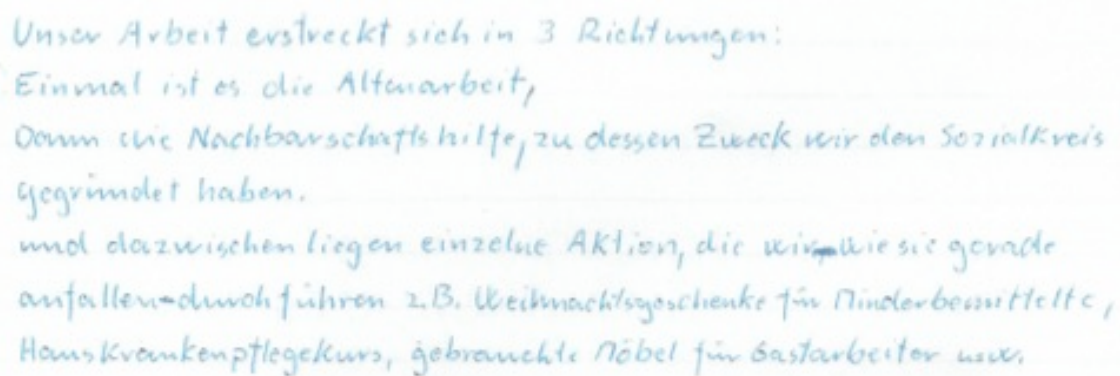 Unser Arbeit erstreckt sich in 3 Richtungen:
Einmal ist es die Altenarbeit,
Dann die Nachbarschaftshilfe, zu dessen Zweck wir den Sozialkreis
gegründet haben.
und dazwischen liegen einzelne Aktion, die wir-wie sie gerade
anfallen-durchführen z.B. Weihnachtsgeschenke für Minderbemittelte,
Hauskrankenpflegekurs, gebrauchte Möbel für Gastarbeiter usw.